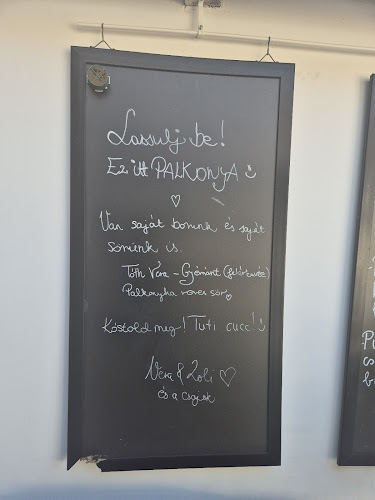 Lassulj be!
Ez itt PALKONYA
Van saját borunk és saját
sörünk is.
Tóth Vera - Gyémánt (fehércuvée)
Palkonyha vörös sör
Kóstold meg! Tuti cucc!
Vera & Zoli
és a csajok
Pa
cs
b